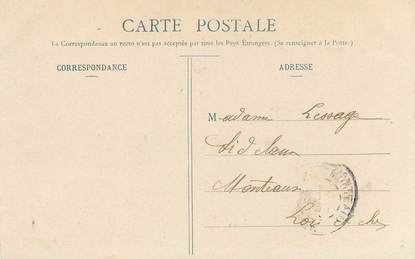 CARTE POSTALE
La Correspondance au recto n'est pas acceptée par tous les Pays Étrangers. (Se renseigner à la Poste.)
CORRESPONDANCE
ADRESSE
Madame Lesage
Monteaux
Loir et Cher
MONTEAUX